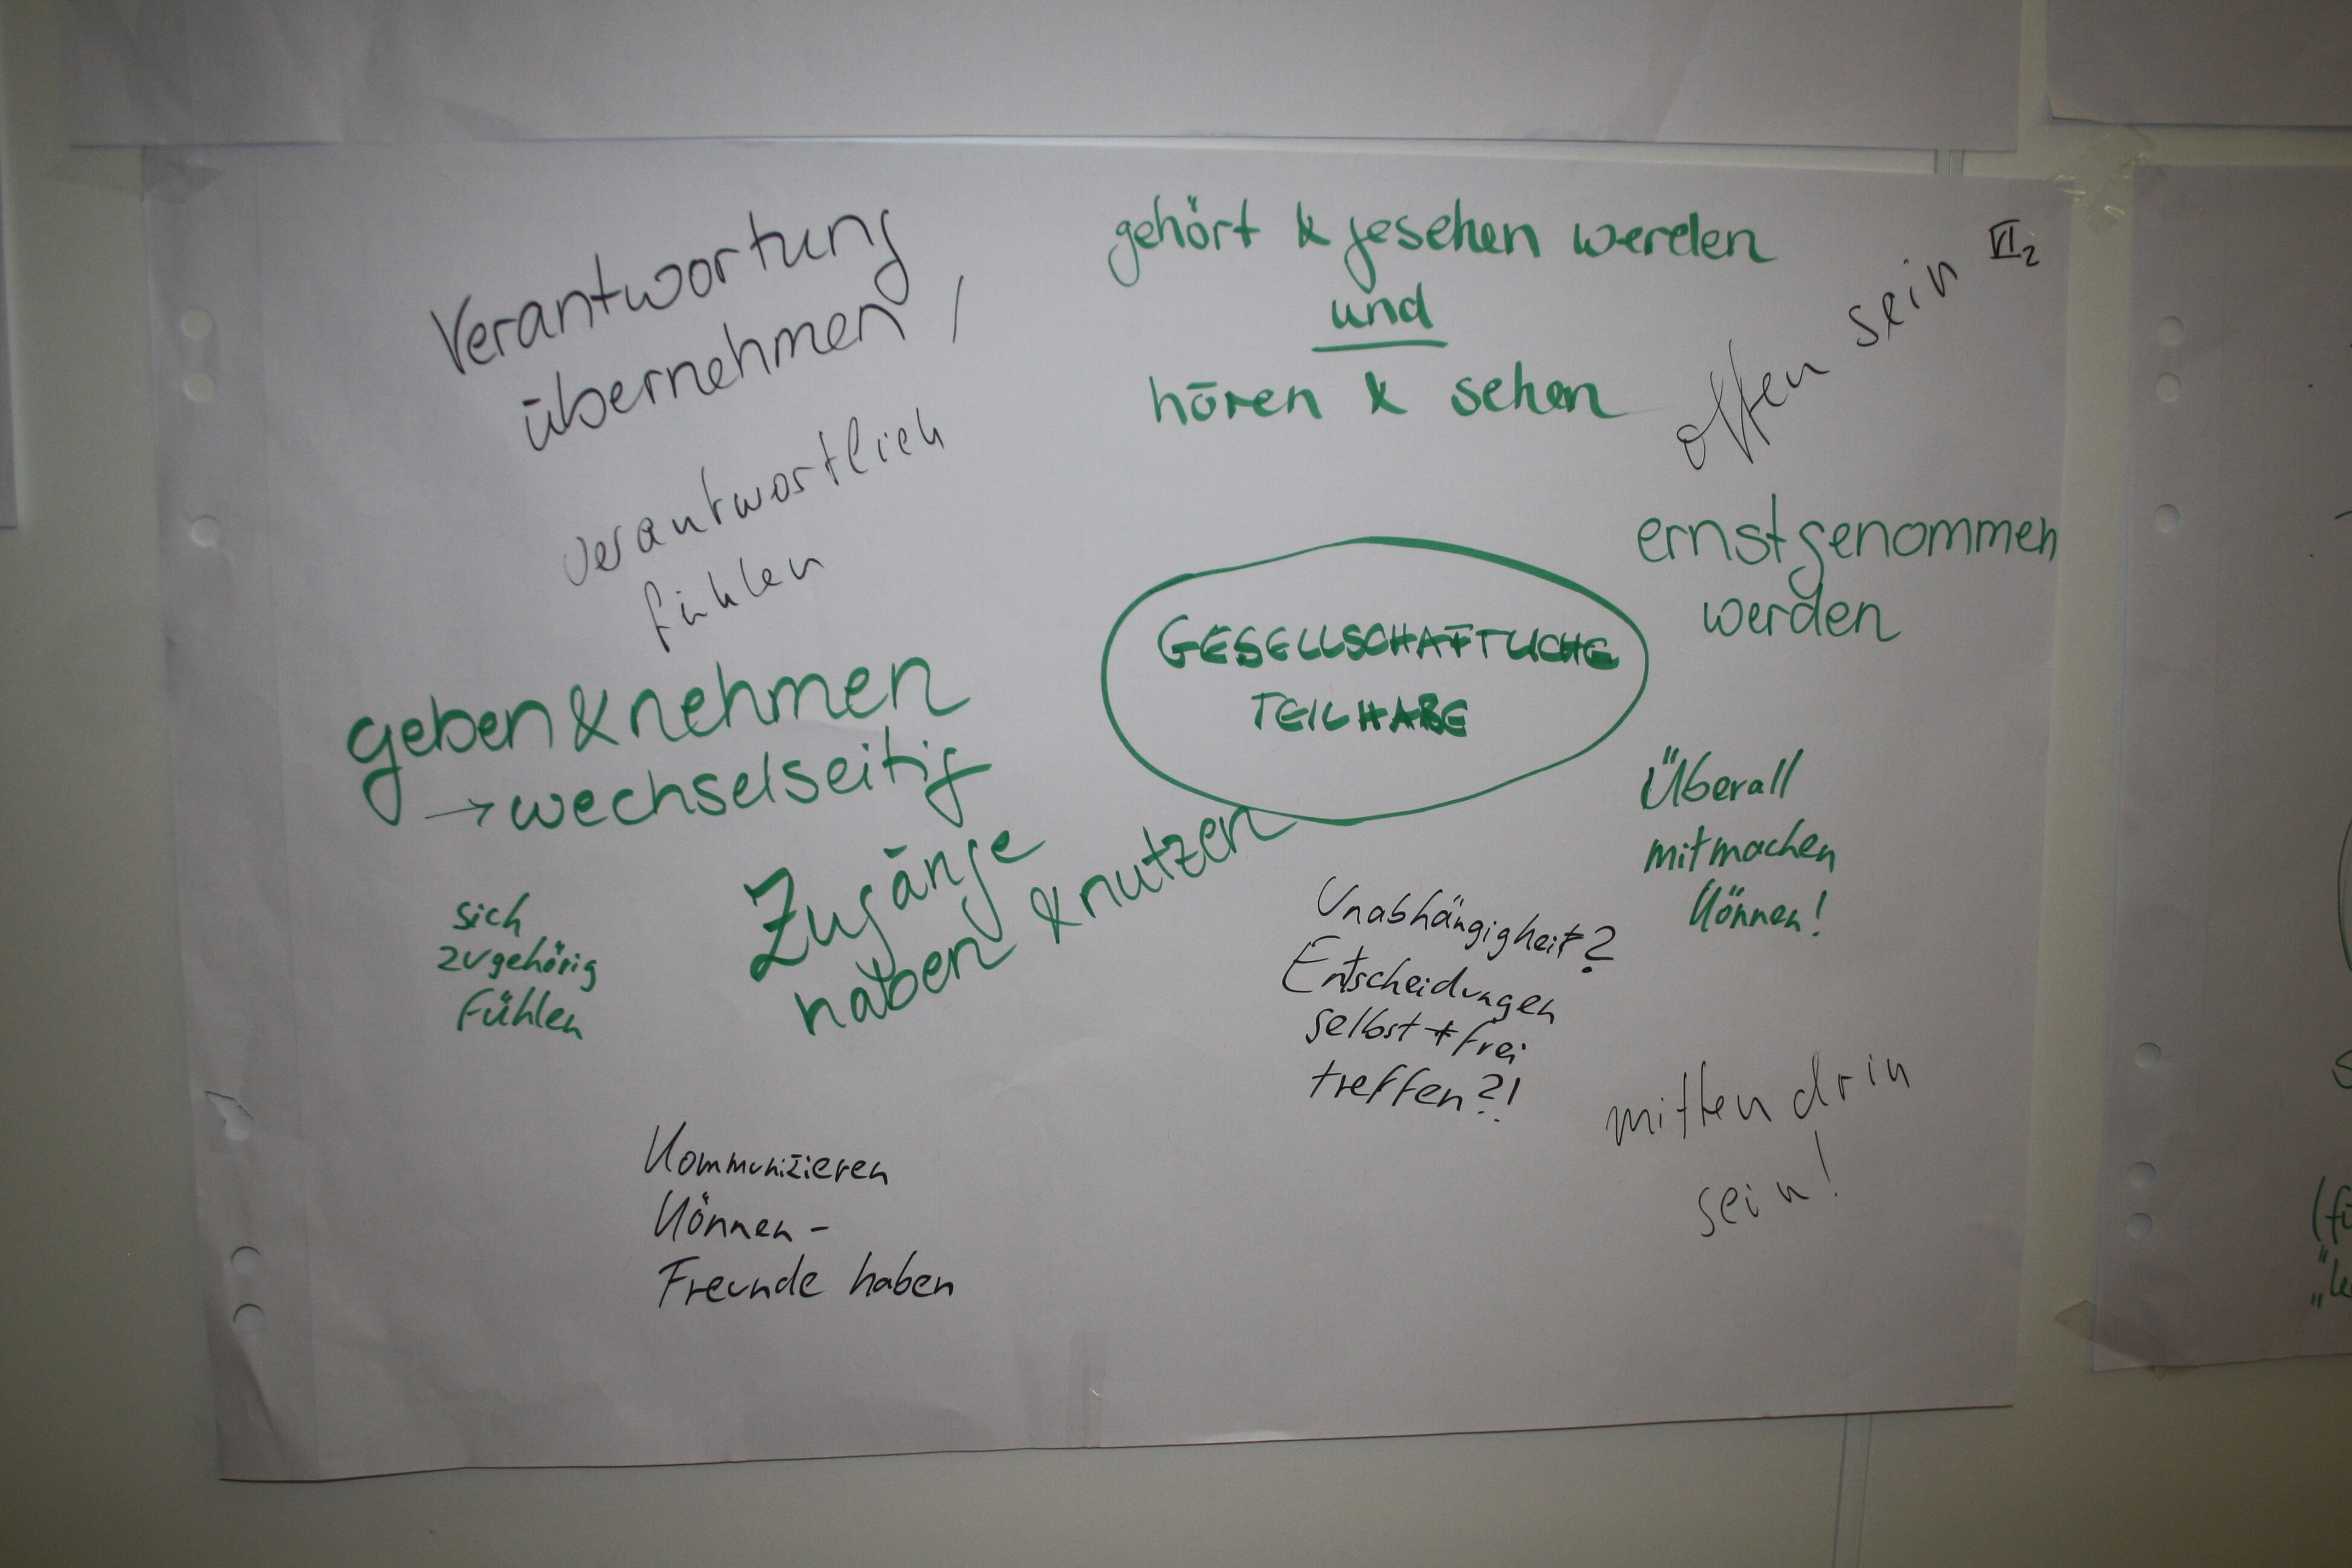 Verantwortung
übernehmen /
verantwortlich
fühlen
gehört & gesehen werden
und
hören & sehen
VI2
offen sein
ernstgenommen
werden
GESELLSCHAFTLICHE
TEILHABE
geben & nehmen
→ wechselseitig
Zugänge
haben & nutzen
Überall
mitmachen
können!
sich
zugehörig
fühlen
Unabhängigkeit?
Entscheidungen
selbst + frei
treffen?!
mitten drin
sein!
Kommunizieren
können –
Freunde haben